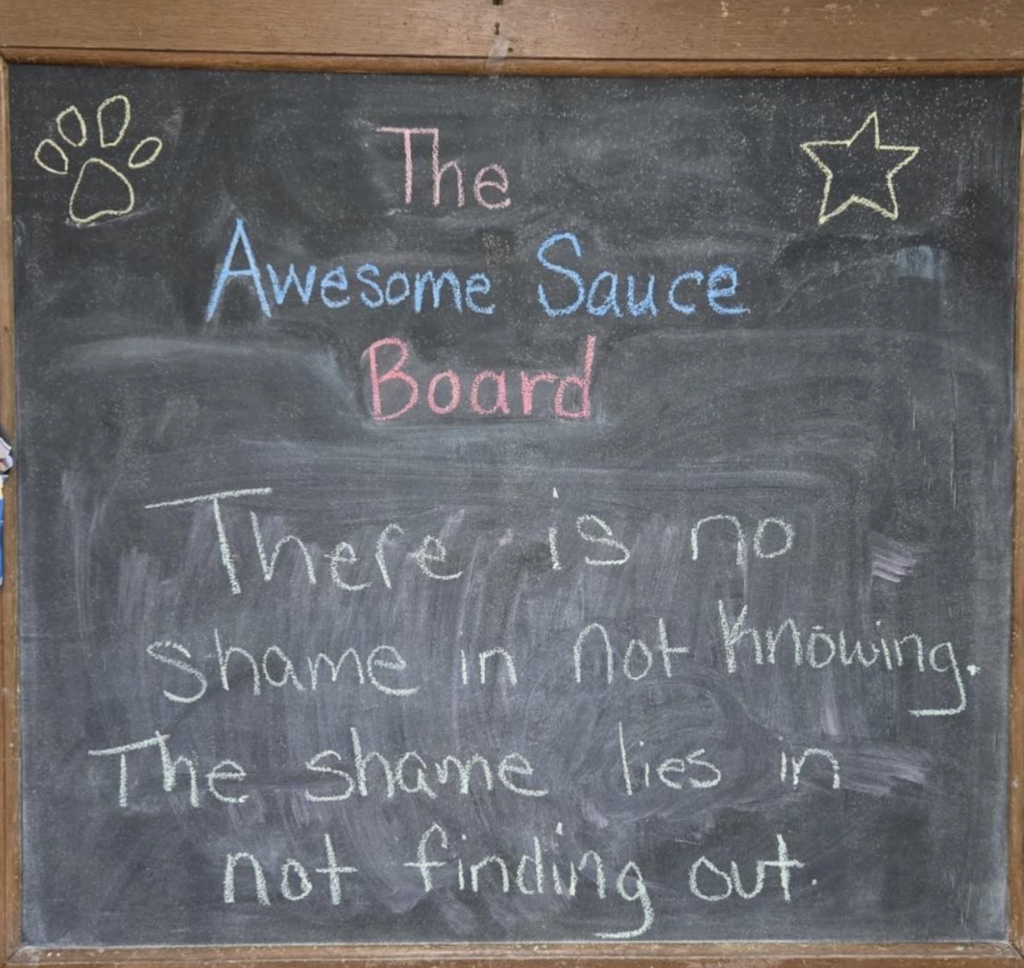 The
Awesome Sauce
Board
There is no
shame in not knowing.
The shame lies in
not finding out.